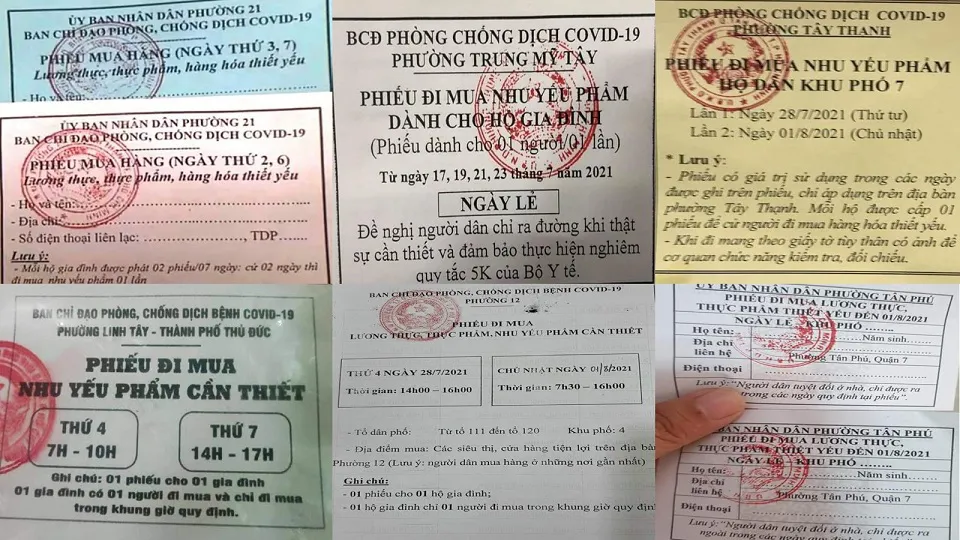 ỦY BAN NHÂN DÂN PHƯỜNG 21
BAN CHỈ ĐẠO PHÒNG, CHỐNG DỊCH COVID-19
PHIẾU MUA HÀNG (NGÀY THỨ 3, 7)
Lương thực, thực phẩm, hàng hóa thiết yếu
- Họ và tên:
ỦY BAN NHÂN DÂN PHƯỜNG 21
BAN CHỈ ĐẠO PHÒNG, CHỐNG DỊCH COVID-19
PHIẾU MUA HÀNG (NGÀY THỨ 2, 6)
Lương thực, thực phẩm, hàng hóa thiết yếu
- Họ và tên:
- Địa chỉ:
- Số điện thoại liên lạc: ……………………, TDP……
Lưu ý:
- Mỗi hộ gia đình được phát 02 phiếu/07 ngày: cứ 02 ngày thì
đi mua nhu yếu phẩm 01 lần
BCĐ PHÒNG CHỐNG DỊCH COVID-19
PHƯỜNG TRUNG MỸ TÂY
PHIẾU ĐI MUA NHU YẾU PHẨM
DÀNH CHO HỘ GIA ĐÌNH
(Phiếu dành cho 01 người/01 lần)
Từ ngày 17, 19, 21, 23 tháng 7 năm 2021
NGÀY LẺ
Đề nghị người dân chỉ ra đường khi thật
sự cần thiết và đảm bảo thực hiện nghiêm
quy tắc 5K của Bộ Y tế.
BCĐ PHÒNG CHỐNG DỊCH COVID-19
PHƯỜNG TÂY THẠNH
PHIẾU ĐI MUA NHU YẾU PHẨM
HỘ DÂN KHU PHỐ 7
Lần 1: Ngày 28/7/2021 (Thứ tư)
Lần 2: Ngày 01/8/2021 (Chủ nhật)
* Lưu ý:
- Phiếu có giá trị sử dụng trong các ngày
được ghi trên phiếu, chỉ áp dụng trên địa bàn
phường Tây Thạnh. Mỗi hộ được cấp 01
phiếu để cử người đi mua hàng hóa thiết yếu.
- Khi đi mang theo giấy tờ tùy thân có ảnh để
cơ quan chức năng kiểm tra, đối chiếu.
BAN CHỈ ĐẠO PHÒNG, CHỐNG DỊCH BỆNH COVID-19
PHƯỜNG LINH TÂY - THÀNH PHỐ THỦ ĐỨC
PHIẾU ĐI MUA
NHU YẾU PHẨM CẦN THIẾT
THỨ 4
7H - 10H
THỨ 7
14H - 17H
Ghi chú: 01 phiếu cho 01 gia đình
01 gia đình có 01 người đi mua và chỉ đi mua
trong khung giờ quy định.
BAN CHỈ ĐẠO PHÒNG, CHỐNG DỊCH BỆNH COVID-19
PHƯỜNG 12
PHIẾU ĐI MUA
LƯƠNG THỰC, THỰC PHẨM, NHU YẾU PHẨM CẦN THIẾT
THỨ 4 NGÀY 28/7/2021
Thời gian: 14h00 – 16h00
CHỦ NHẬT NGÀY 01/8/2021
Thời gian: 7h30 – 16h00
- Tổ dân phố: Từ tổ 111 đến tổ 120 Khu phố: 4
- Địa điểm mua: Các siêu thị, cửa hàng tiện lợi trên địa bàn
Phường 12 (Lưu ý: người dân mua hàng ở những nơi gần nhất)
Ghi chú:
- 01 phiếu cho 01 hộ gia đình;
- 01 hộ gia đình chỉ 01 người đi mua trong khung giờ quy định
ỦY BAN NHÂN DÂN PHƯỜNG TÂN PHÚ
PHIẾU ĐI MUA LƯƠNG THỰC,
THỰC PHẨM THIẾT YẾU ĐẾN 01/8/2021
NGÀY LẺ KHU PHỐ ……..
Họ tên: ……………Năm sinh……..
Địa chỉ liên hệ
Phường Tân Phú, Quận 7
Điện thoại
Lưu ý: "Người dân tuyệt đối ở nhà, chỉ được ra
ngoài trong các ngày quy định tại phiếu".
BAN NHÂN DÂN PHƯỜNG TÂN PHÚ
PHIẾU ĐI MUA LƯƠNG THỰC,
THỰC PHẨM THIẾT YẾU ĐẾN 01/8/2021
NGÀY LẺ KHU PHỐ ……..
Họ tên: ……………Năm sinh……..
Địa chỉ liên hệ
Phường Tân Phú, Quận 7
Điện thoại
Lưu ý: "Người dân tuyệt đối ở nhà, chỉ được ra